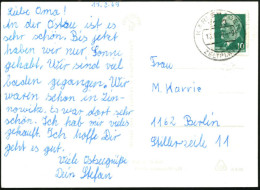 14.8.69
Liebe Oma!
An der Ostsee ist es
sehr schön. Bis jetzt
haben wir nur Sonne
gehabt. Wir sind viel
baden gegangen. Wir
waren schon in Zin-
nowitz. Es war dort sehr
schön. Ich hab mir viel
gekauft. Ich hoffe Dir
geht es gut.
Viele Ostseegrüße
Dein Stefan
10
Frau
M.
1162 Berlin